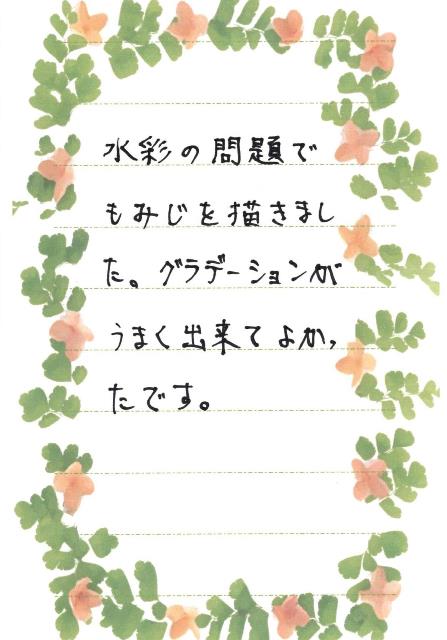 水彩の問題で
もみじを描きまし
た。グラデーションが
うまく出来てよかっ
たです。